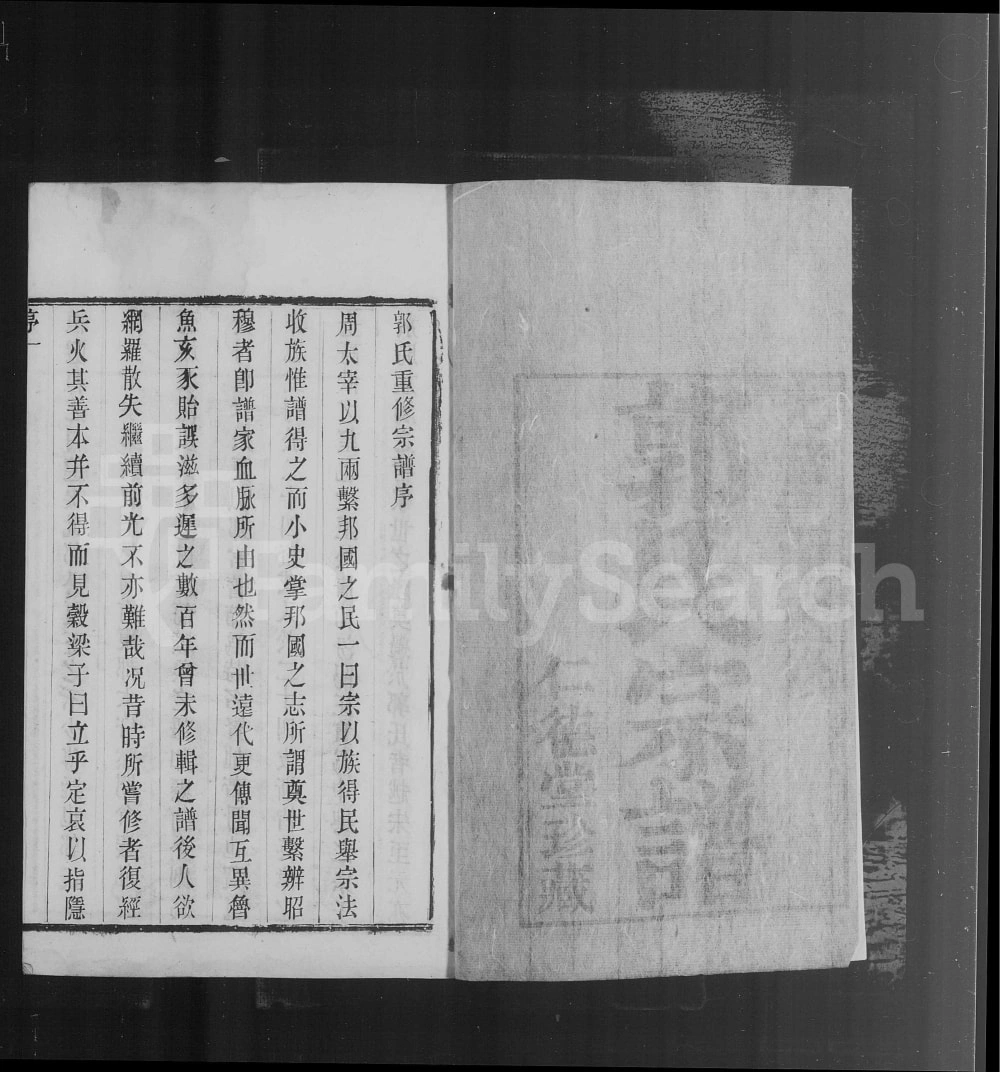 郭氏宗譜
仁德堂珍藏
郭氏重修宗譜序
周太宰以九兩繫邦國之民一曰宗以族得民舉宗法
收族惟譜得之而小史掌邦國之志所謂奠世繫辨昭
穆者卽譜家血脈所由也然而世遠代更傳聞互異魯
魚亥豕貽誤滋多遲之數百年曾未修輯之譜後人欲
網羅散失繼續前光不亦難哉况昔時所嘗修者復經
兵火其善本幷不得而見穀梁子曰立乎定哀以指隱
序一
FamilySearch